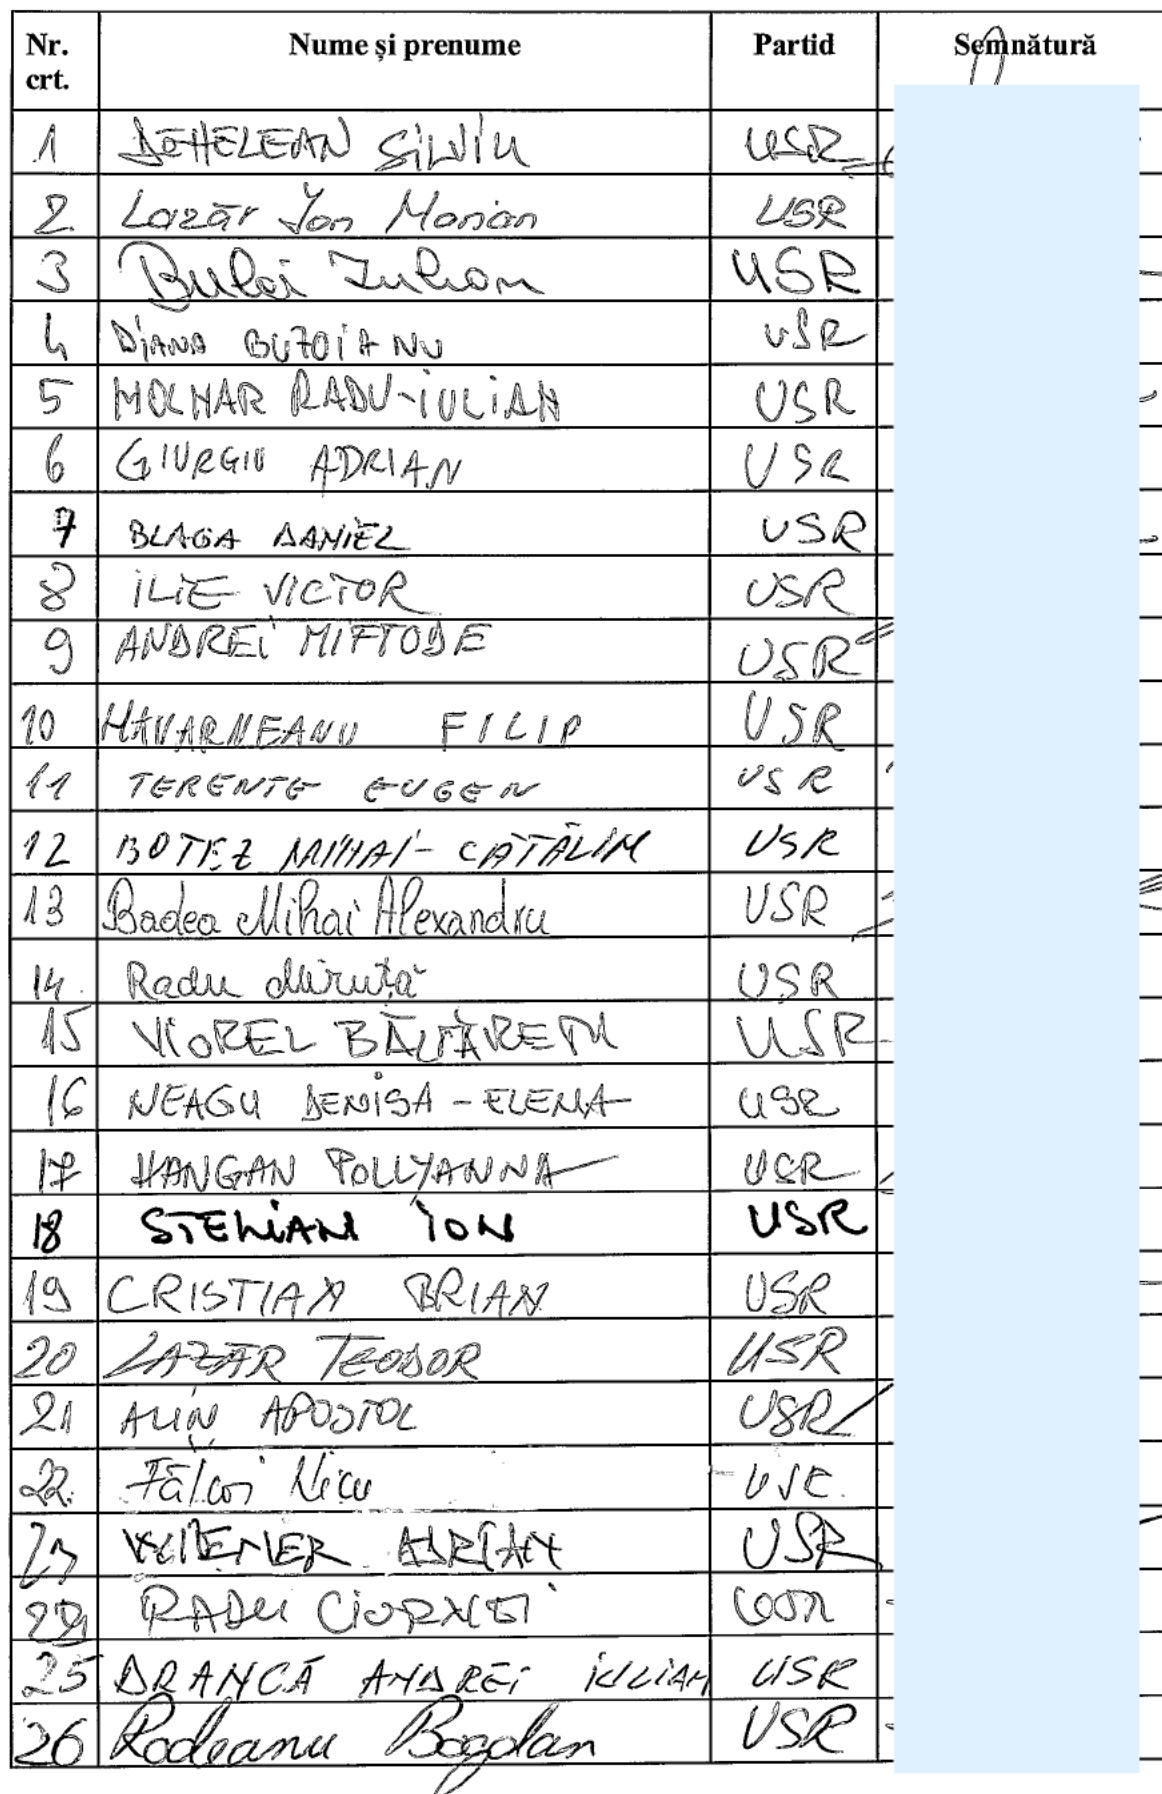 Nr. crt. Nume și prenume Partid Semnătură
1 DEHELEAN SILVIU USR
2 Lazăr Ion Marian USR
3 Bulai Iulian USR
4 DIANA BUZOIANU USR
5 MOLNAR RADU-IULIAN USR
6 GIURGIU ADRIAN USR
7 BLAGA DANIEL USR
8 ILIE VICTOR USR
9 ANDREI MIFTODE USR
10 HAVARNEANU FILIP USR
11 TERENTE EUGEN USR
12 BOTEZ MIHAI-CĂTĂLIN USR
13 Badea Mihai Alexandru USR
14. Radu Miruță USR
15 VIOREL BĂLTĂREȚU USR
16 NEAGU DENISA-ELENA USR
17 HANGAN POLLYANNA USR
18 STELIAN ION USR
19 CRISTIAN BRIAN USR
20 LAZĂR TEODOR USR
21 ALIN APOSTOL USR
22. Fălcoi Nicu USR
23 WIENER ADRIAN USR
24 RADU CIORNEI USR
25 DRANCĂ ANDREI IULIAN USR
26 Rodeanu Bogdan USR